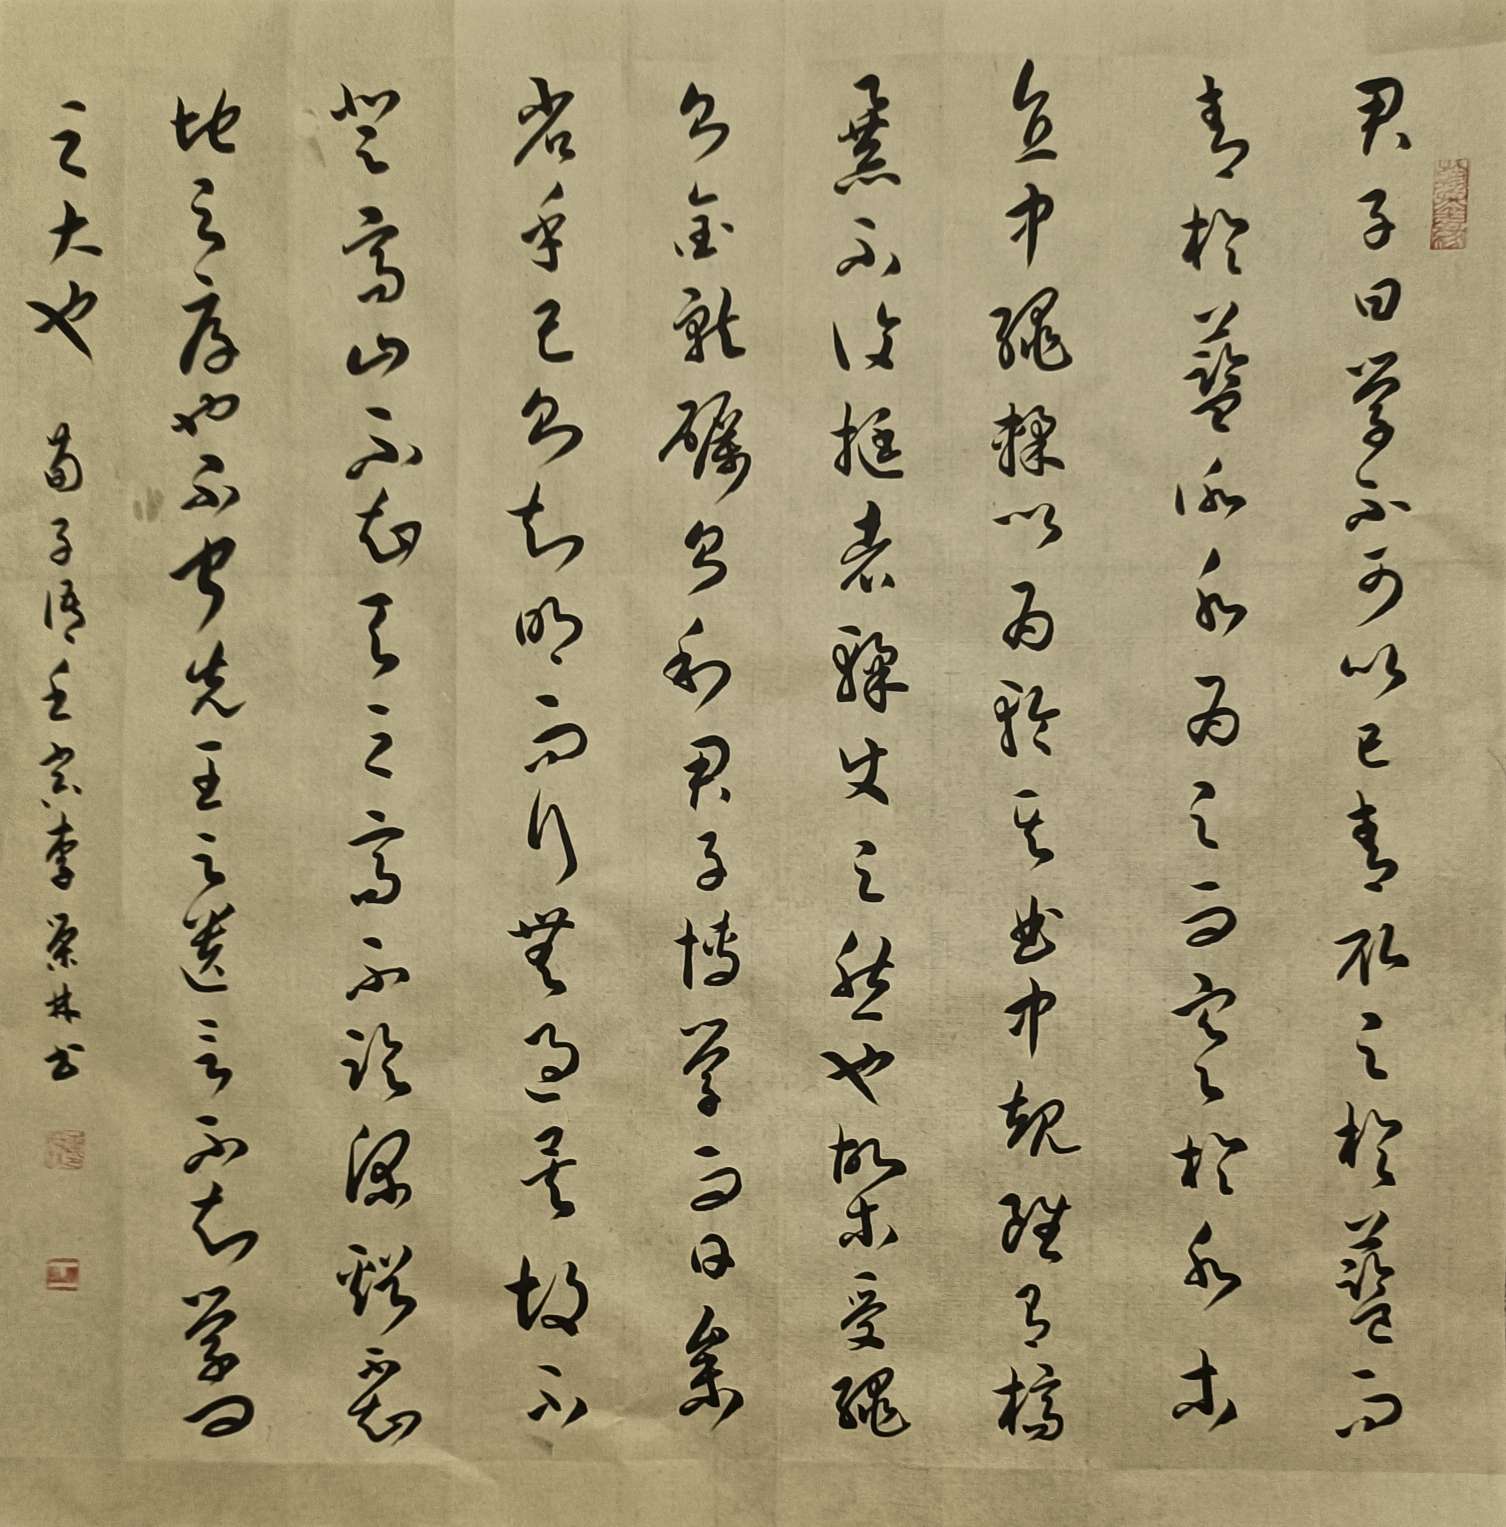 君子曰學不可以已青取之於藍而
青於藍冰水為之而寒於水木
直中繩輮以為輪其曲中規雖有槁
暴不復挺者輮使之然也故木受繩
則金就礪則利君子博學而日參
省乎己則知明而行無過矣故不
登高山不知天之高不臨深谿不知
地之厚也不聞先王之遺言不知學問
之大也 荀子語壬寅李榮林書